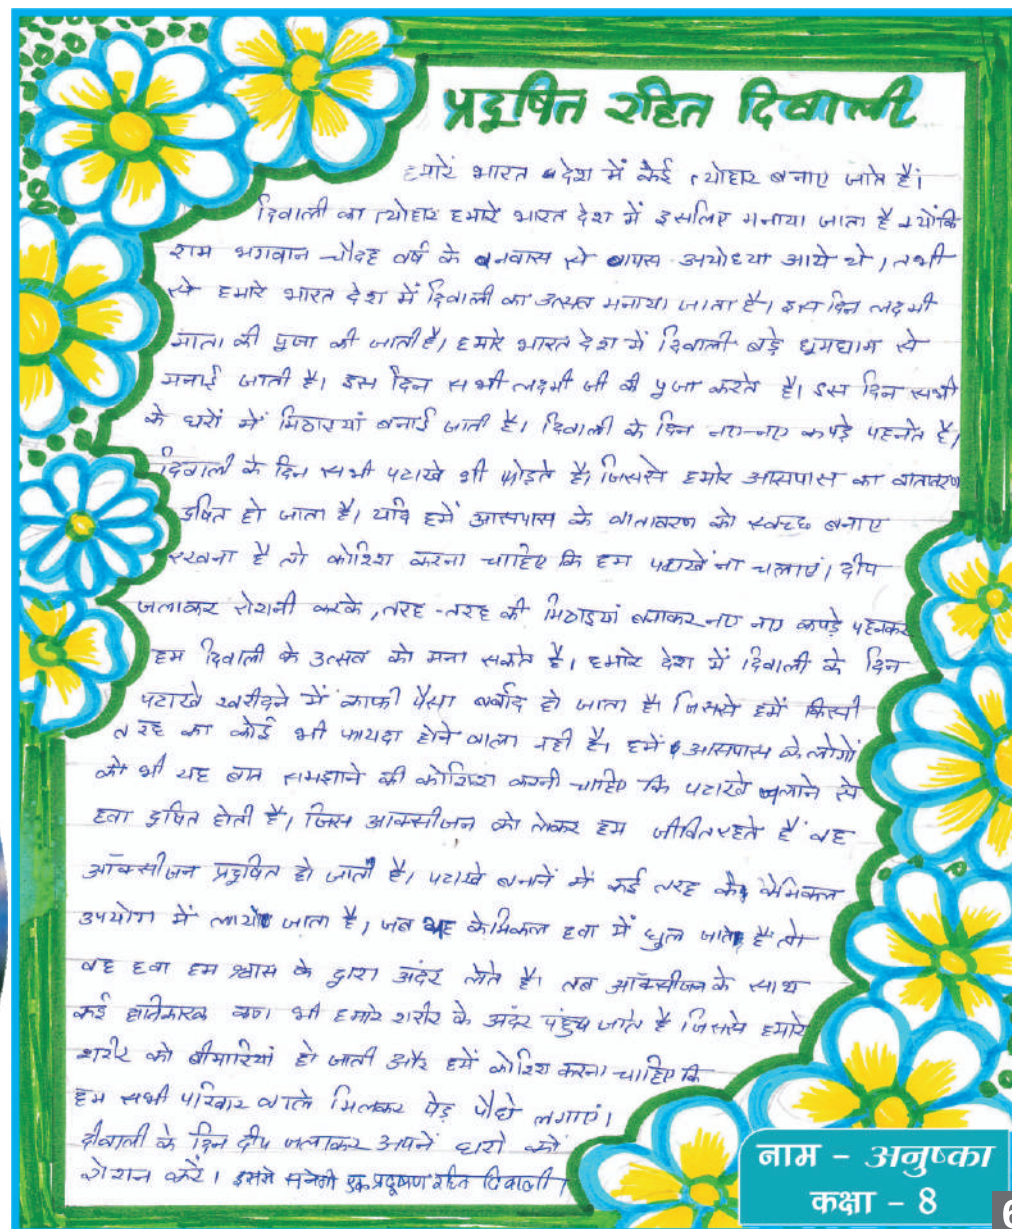 प्रदुषित रहित दिवाली
हमारें भारत देश में कई त्योहार बनाए जाते हैं।
दिवाली का त्योहार हमारे भारत देश में इसलिए मनाया जाता है क्योंकि
राम भगवान चौदह वर्ष के बनवास से वापस अयोध्या आये थे, तभी
से हमारे भारत देश में दिवाली का उत्सव मनाया जाता है। इस दिन लक्ष्मी
माता की पूजा की जाती है। हमारे भारत देश में दिवाली बड़े धूमधाम से
मनाई जाती है। इस दिन सभी लक्ष्मी जी की पूजा करते है। इस दिन सभी
के घरों में मिठाइयां बनाई जाती है। दिवाली के दिन नए-नए कपड़े पहनते है।
दिवाली के दिन सभी पटाखे भी फोड़ते है। जिससे हमारे आसपास का वातावरण
दुषित हो जाता है। यदि हमें आसपास के वातावरण को स्वच्छ बनाए
रखना है तो कोशिश करना चाहिए कि हम पटाखें ना चलाएं। दीप
जलाकर रोशनी करके, तरह-तरह की मिठाइयां बनाकर नए नए कपड़े पहनकर
हम दिवाली के उत्सव को मना सकते है। हमारे देश में दिवाली के दिन
पटाखे खरीदने में काफी पैसा बर्बाद हो जाता है। जिससे हमें किसी
तरह का कोई भी फायदा होने वाला नही है। हमें आसपास के लोगों
को भी यह बात समझाने की कोशिश करनी चाहिए कि पटाखे जलाने से
हवा दुषित होती है। जिस आक्सीजन को लेकर हम जीवित रहते हैं वह
ऑक्सीजन प्रदुषित हो जाती है। पटाखे बनाने में कई तरह के केमिकल
उपयोग में लाये जाता है, जब यह केमिकल हवा में घुल जाते है तो
वह हवा हम श्वास के द्वारा अंदर लेते है। तब ऑक्सीजन के साथ
कई हानिकारक कण भी हमारे शरीर के अंदर पंहुच जाते है जिससे हमारे
शरीर को बीमारियां हो जाती और हमें कोशिश करना चाहिए कि
हम सभी परिवार वाले मिलकर पेड़ पौधे लगाएं।
दीवाली के दिन दीप जलाकर अपने घरो को
रोशन करें। इससे मनेगी एक प्रदूषण रहित दिवाली।
नाम - अनुष्का
कक्षा - 8
6